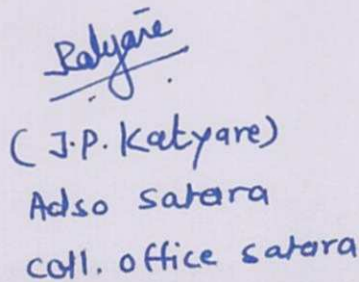 Katyare
(J.P. Katyare)
Adso satara
coll. office satara